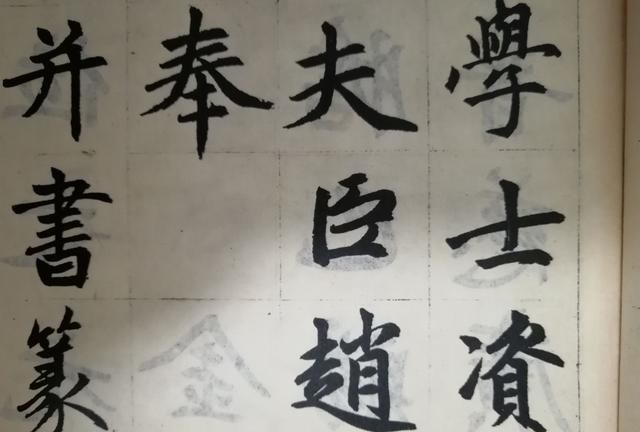 學士資
夫臣趙
奉
并書篆